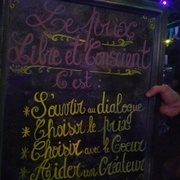 Le Prix
Libre et Conscient
C'est :
* S'ouvrir au dialogue
* Choisir le prix
* Choisir avec le Coeur
* Aider un Créateur